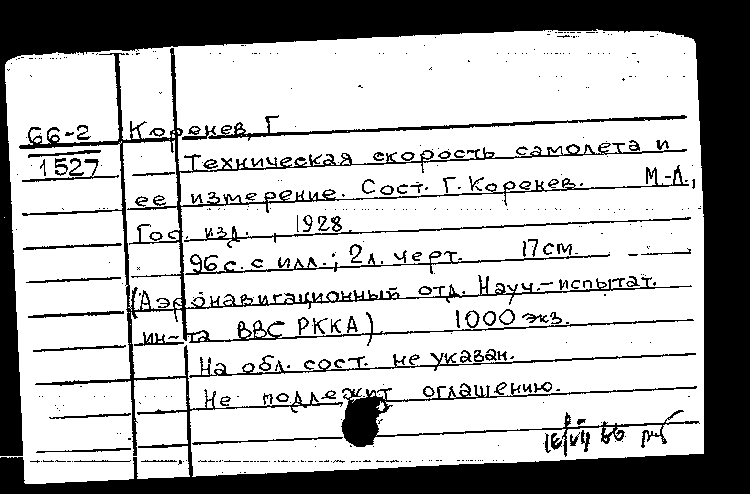 66-2 Коренев, Г
1527 Техническая скорость самолета и
ее измерение. Сост. Г. Коренев. М.-Л.,
Гос. изд., 1928.
96 с. с илл.; 2 л. черт. 17 см.
(Аэронавигационный отд. Науч.-испытат.
ин-та ВВС РККА). 1000 экз.
На обл. сост. не указан.
Не подлежит оглашению.
16/VII 66